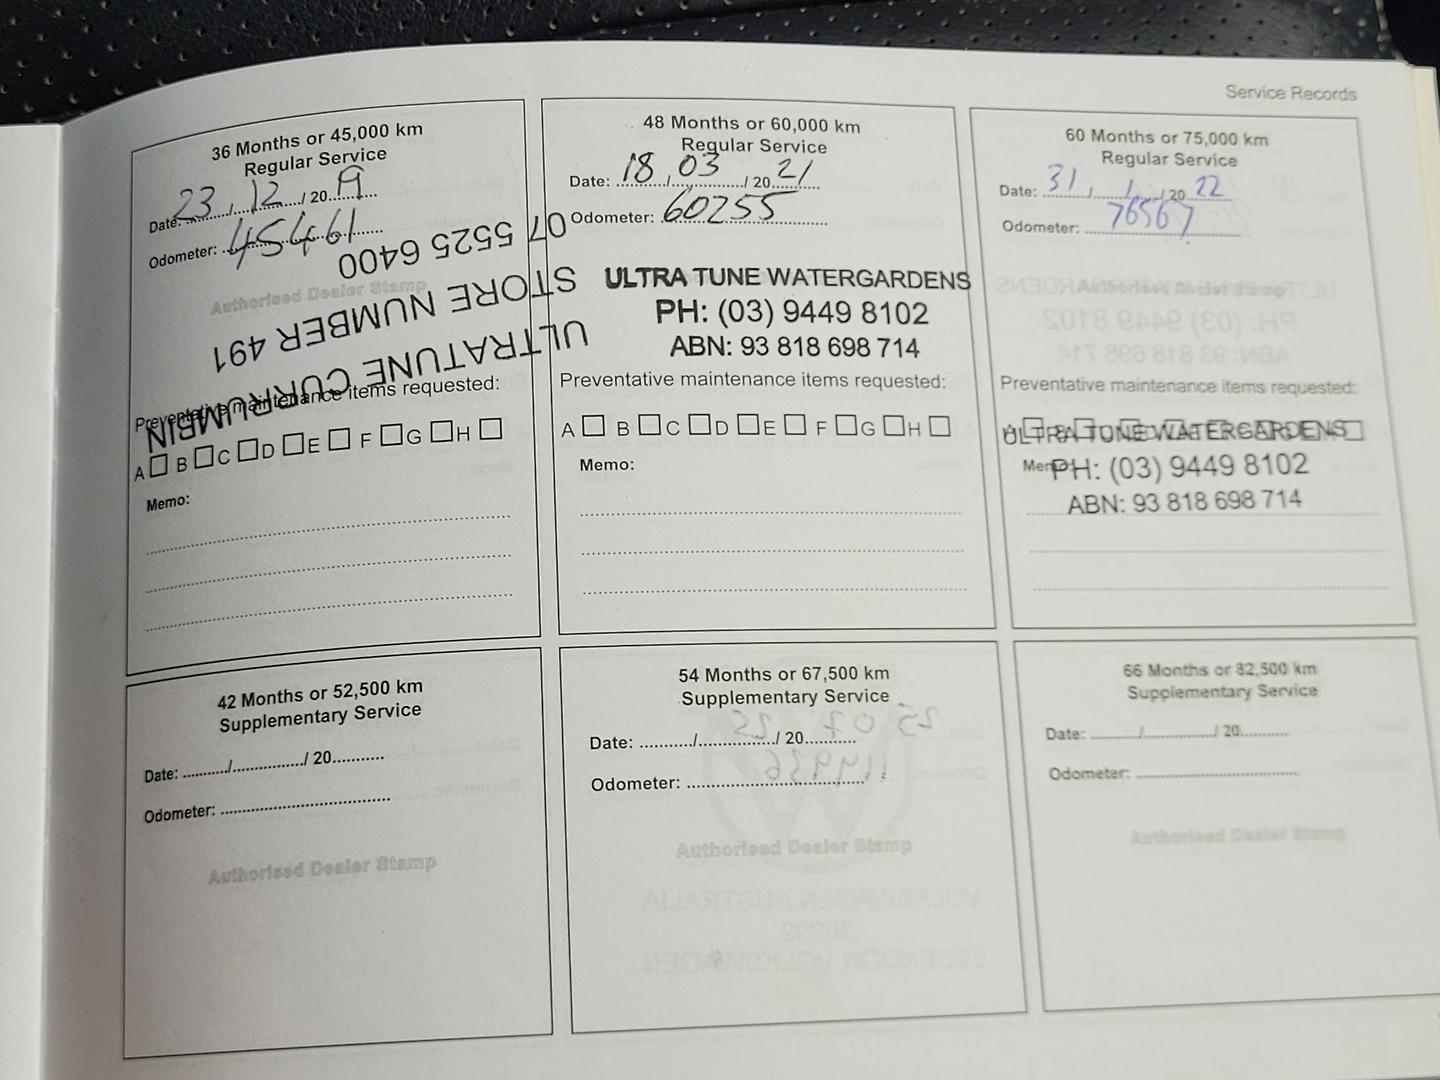 Service Records
36 Months or 45,000 km
Regular Service
Date: 23 / 12 / 20 19
Odometer: 45461
Authorised Dealer Stamp
ULTRATUNE CURRUMBIN
STORE NUMBER 491
07 5525 6400
Preventative maintenance items requested:
A B C D E F G H
Memo:
48 Months or 60,000 km
Regular Service
Date: 18 / 03 / 20 21
Odometer: 60255
ULTRA TUNE WATERGARDENS
PH: (03) 9449 8102
ABN: 93 818 698 714
Preventative maintenance items requested:
A B C D E F G H
Memo:
60 Months or 75,000 km
Regular Service
Date: 31 / 1 / 20 22
Odometer: 76567
Preventative maintenance items requested:
ULTRA TUNE WATERGARDENS
Memo:
PH: (03) 9449 8102
ABN: 93 818 698 714
42 Months or 52,500 km
Supplementary Service
Date: / / 20
Odometer:
Authorised Dealer Stamp
54 Months or 67,500 km
Supplementary Service
Date: / / 20
Odometer:
Authorised Dealer Stamp
66 Months or 82,500 km
Supplementary Service
Date: / / 20
Odometer:
Authorised Dealer Stamp